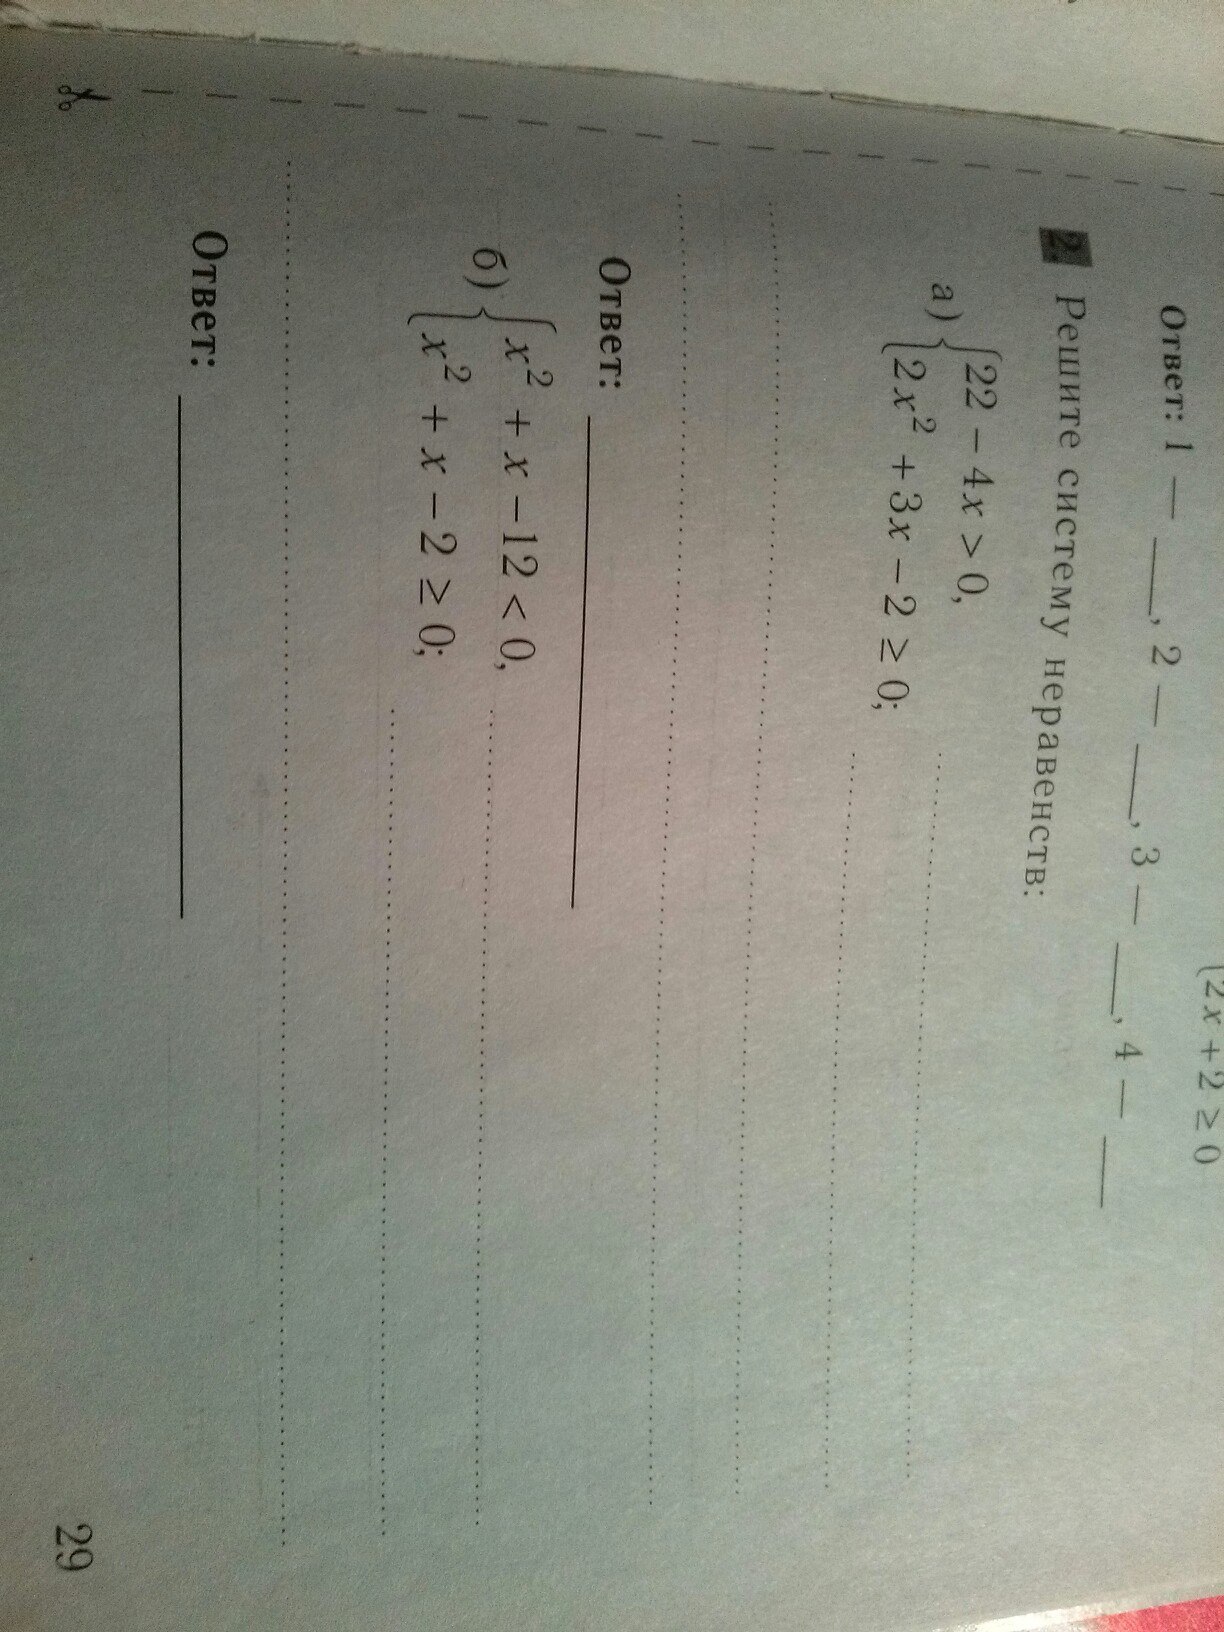 {2x + 2 ≥ 0
Ответ: 1 — ___, 2 — ___, 3 — ___, 4 — ___
2. Решите систему неравенств:
а) {22 – 4x > 0,
2x² + 3x – 2 ≥ 0;
Ответ:
б) {x² + x – 12 < 0,
x² + x – 2 ≥ 0;
Ответ:
29